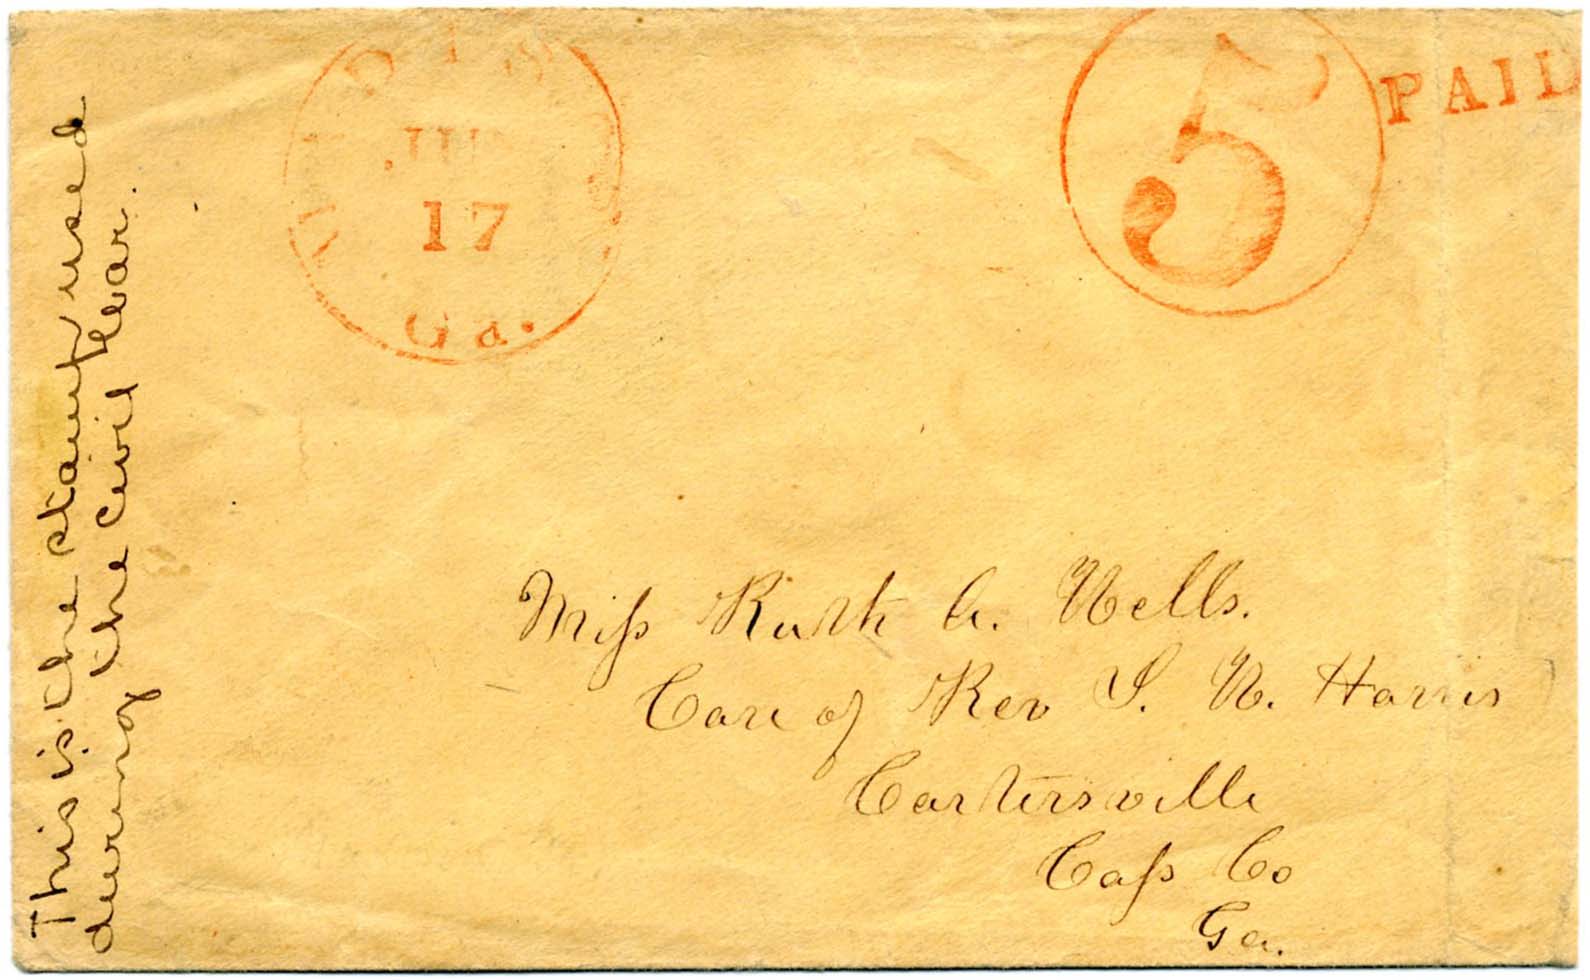 JU
17
Ga.
5
PAID
This is the stamp used
during the Civil War.
Miss Ruth A. Wells.
Care of Rev S. W. Harris
Cartersville
Cass Co
Ga.